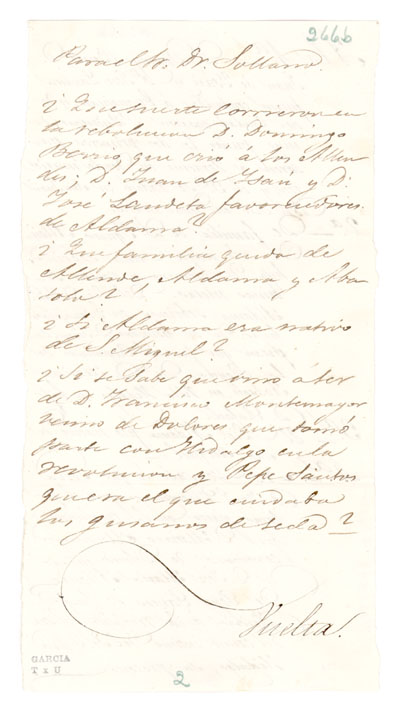 2666
Para el Sr. Dr. Sollano
¿ Que suerte corrieron en
la rebolucion D. Domingo
Berrio, que crió á los Allen
des; D. Juan de Isasi y D.
José Landeta favorecedores
de Aldama?
¿ Que familia queda de
Allende, Aldama y Aba
solo?
¿ Si Aldama era nativo
de S. Miguel?
¿ Si se sabe que vino á ser
de D. Francisco Montemayor
vecino de Dolores que tomó
parte con Hidalgo en la
revolucion y Pepe Santos
que era el que cuidaba
los gusanos de seda?
Vuelta.
GARCIA
T x U
2